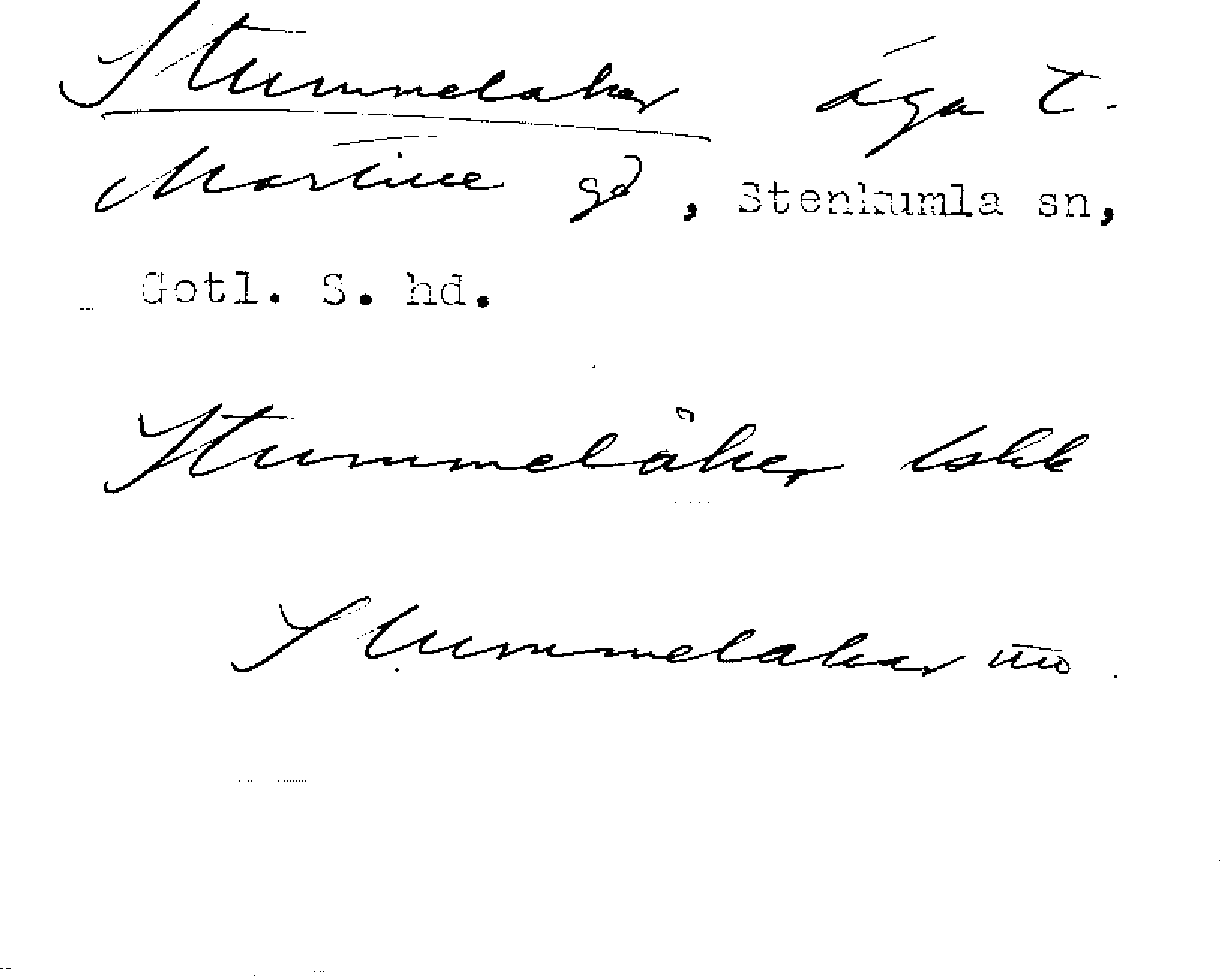 Stummelåker äga t.
Martille gd, Stenkumla sn,
Gotl. S. hd.
Stummelåker Lskk
Stummelakar uo